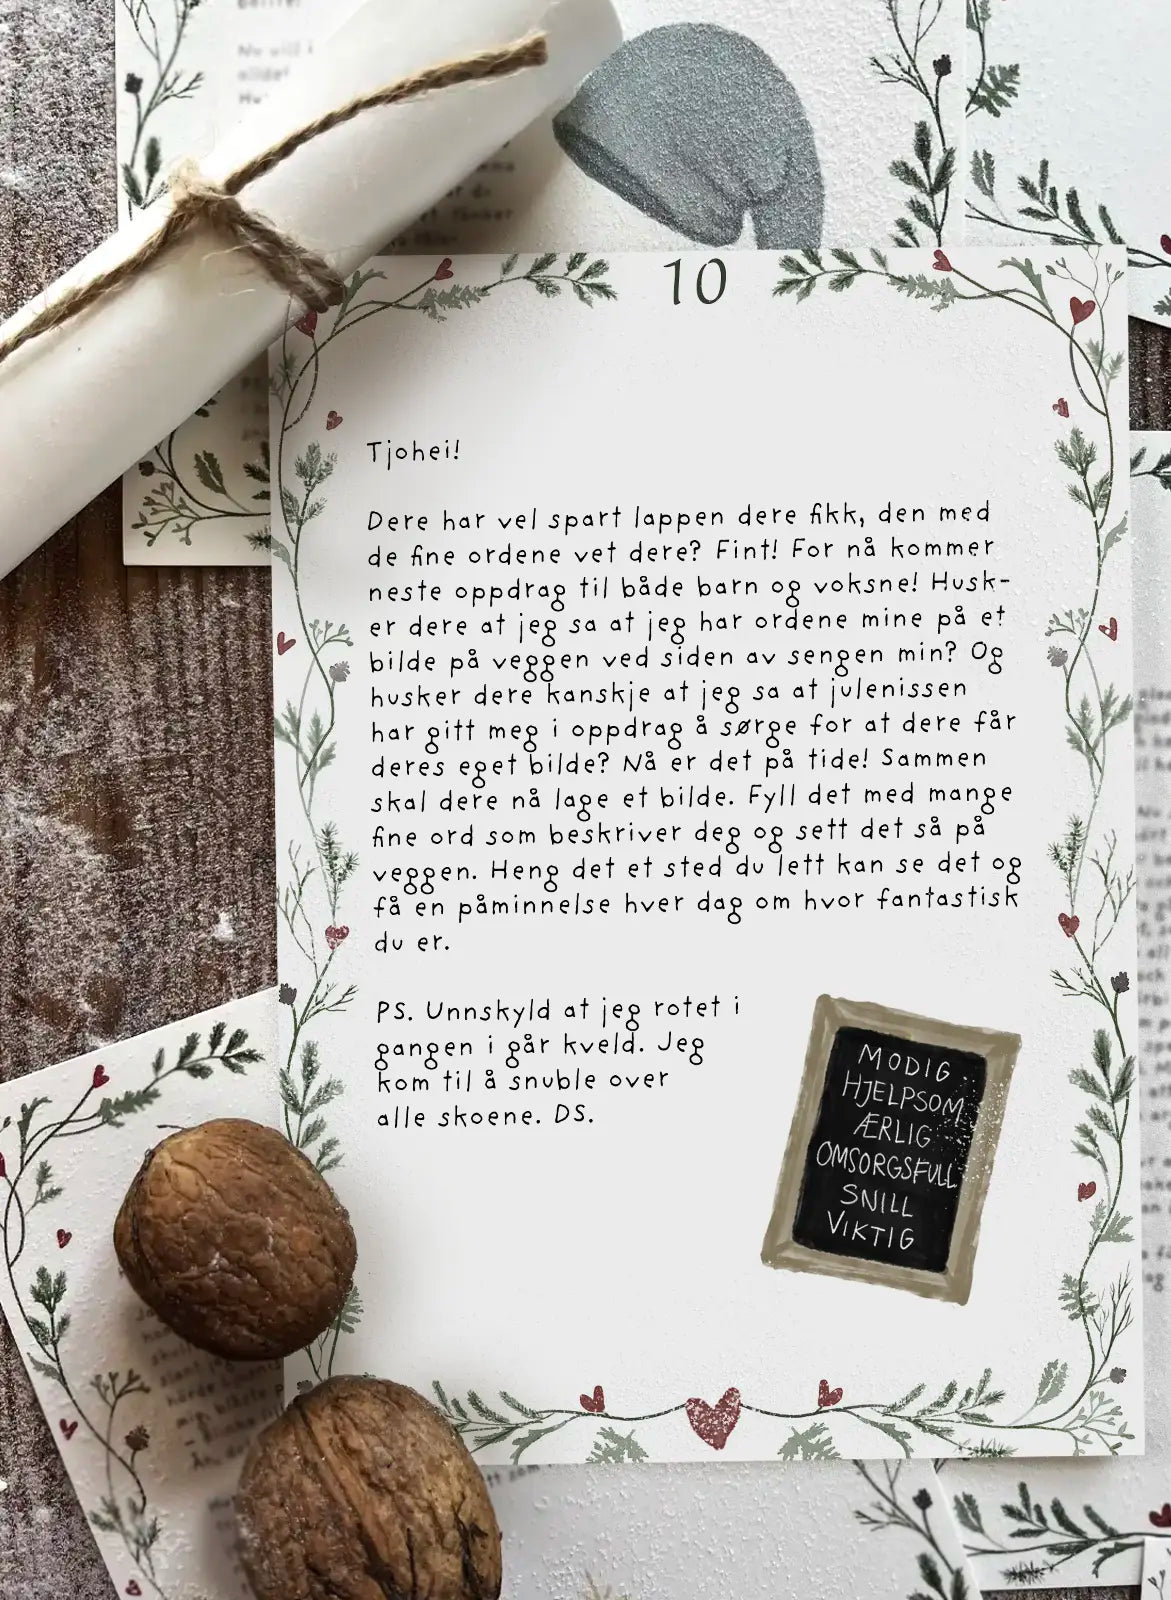 10
Tjohei!
Dere har vel spart lappen dere fikk, den med
de fine ordene vet dere? Fint! For nå kommer
neste oppdrag til både barn og voksne! Husk-
er dere at jeg sa at jeg har ordene mine på et
bilde på veggen ved siden av sengen min? Og
husker dere kanskje at jeg sa at julenissen
har gitt meg i oppdrag å sørge for at dere får
deres eget bilde? Nå er det på tide! Sammen
skal dere nå lage et bilde. Fyll det med mange
fine ord som beskriver deg og sett det så på
veggen. Heng det et sted du lett kan se det og
få en påminnelse hver dag om hvor fantastisk
du er.
PS. Unnskyld at jeg rotet i
gangen i går kveld. Jeg
kom til å snuble over
alle skoene. DS.
MODIG
HJELPSOM
ÆRLIG
OMSORGSFULL
SNILL
VIKTIG